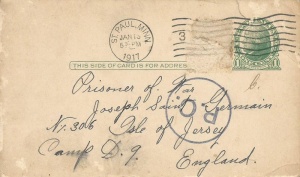 ST. PAUL, MINN.
JAN
5 PM
1917
3
THIS SIDE OF CARD IS FOR ADDRESS
Prisoner of War
Joseph Saint Germain
Nr. 306 Isle of Jersey
Camp D. 9.
England.
P.C.
1 1